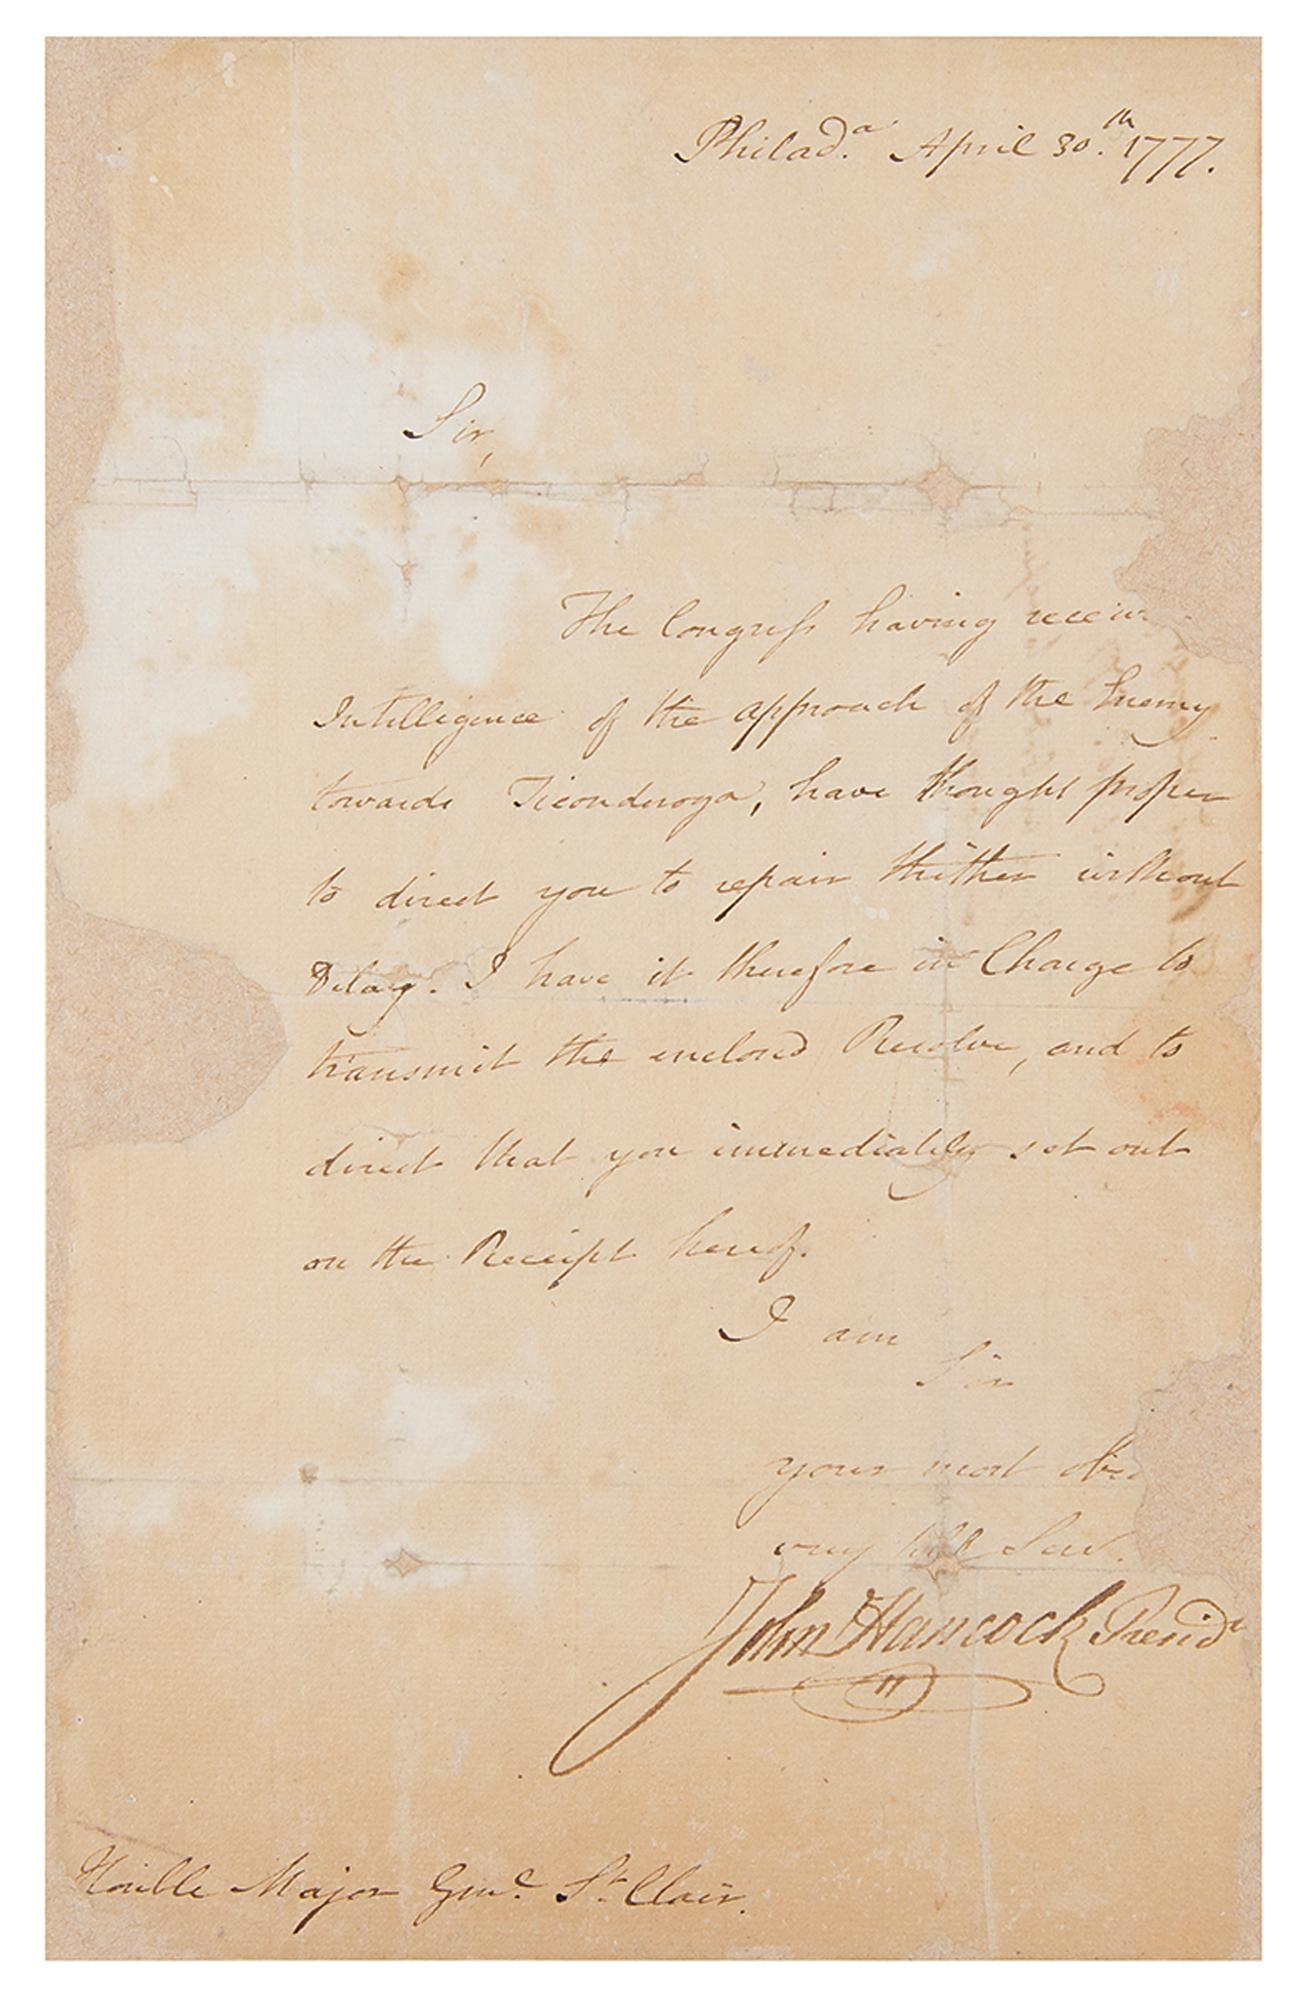 Philad.a April 30.th 1777.
Sir,
The Congress having receiv
Intelligence of the approach of the Enemy
towards Ticonderoga, have thought proper
to direct you to repair thither without
Delay. I have it therefore in Charge to
transmit the enclosed Resolve, and to
direct that you immediately set out
on the Receipt hereof.
I am
Sir
your most obed
very hble Serv.
John Hancock Presid.t
Honble Major Genl. St. Clair.